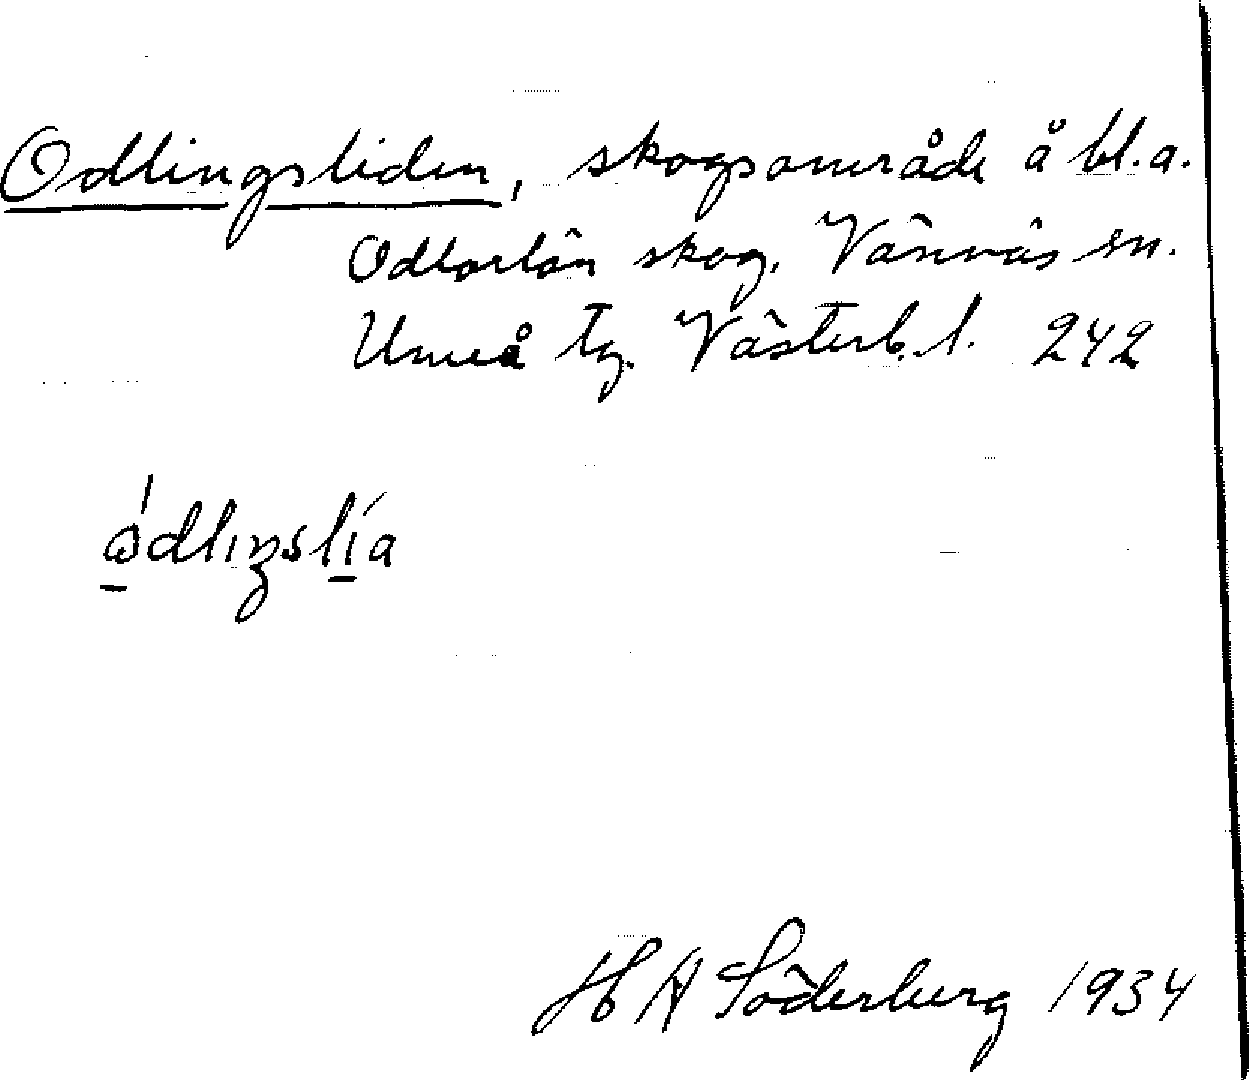 Odlingsliden, skogsområde å bl.a.
Odlarlån skog, Vännäs sn.
Umeå tg. Västerb. l. 242
ὼdlıŋslía
H A Söderberg 1934